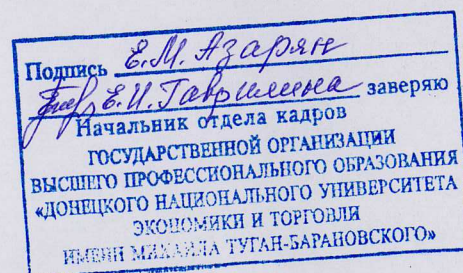 Подпись Е.М. Азарян
Е.И. Гаврилина заверяю
Начальник отдела кадров
ГОСУДАРСТВЕННОЙ ОРГАНИЗАЦИИ
ВЫСШЕГО ПРОФЕССИОНАЛЬНОГО ОБРАЗОВАНИЯ
«ДОНЕЦКОГО НАЦИОНАЛЬНОГО УНИВЕРСИТЕТА
ЭКОНОМИКИ И ТОРГОВЛИ
ИМЕНИ МИХАИЛА ТУГАН-БАРАНОВСКОГО»